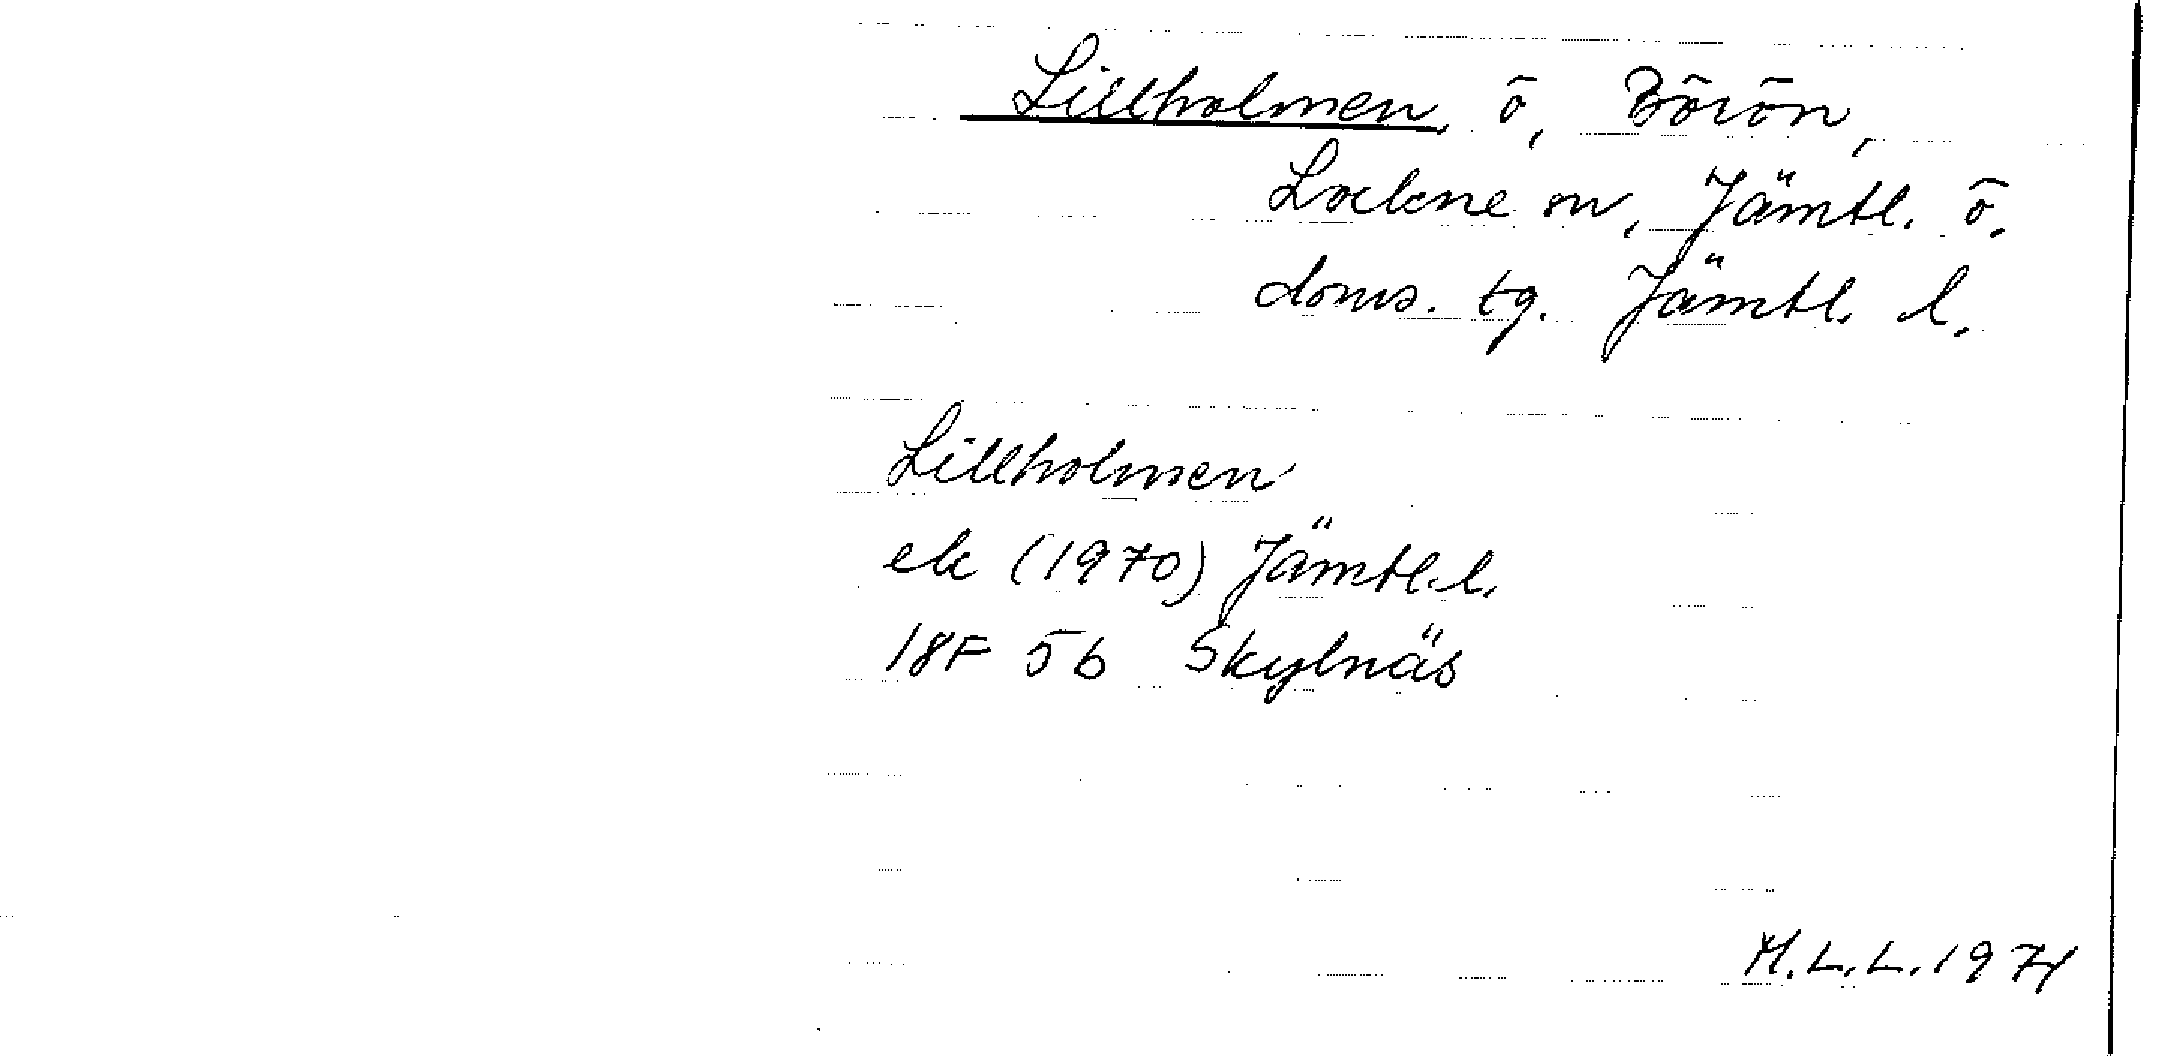 Lillholmen, ö, Börön,
Lockne sn, Jämtl. ö.
doms. tg. Jämtl. l.
Lillholmen
ek (1970) Jämtl. l.
18F 5b Skylnäs
M.L.L. 1971